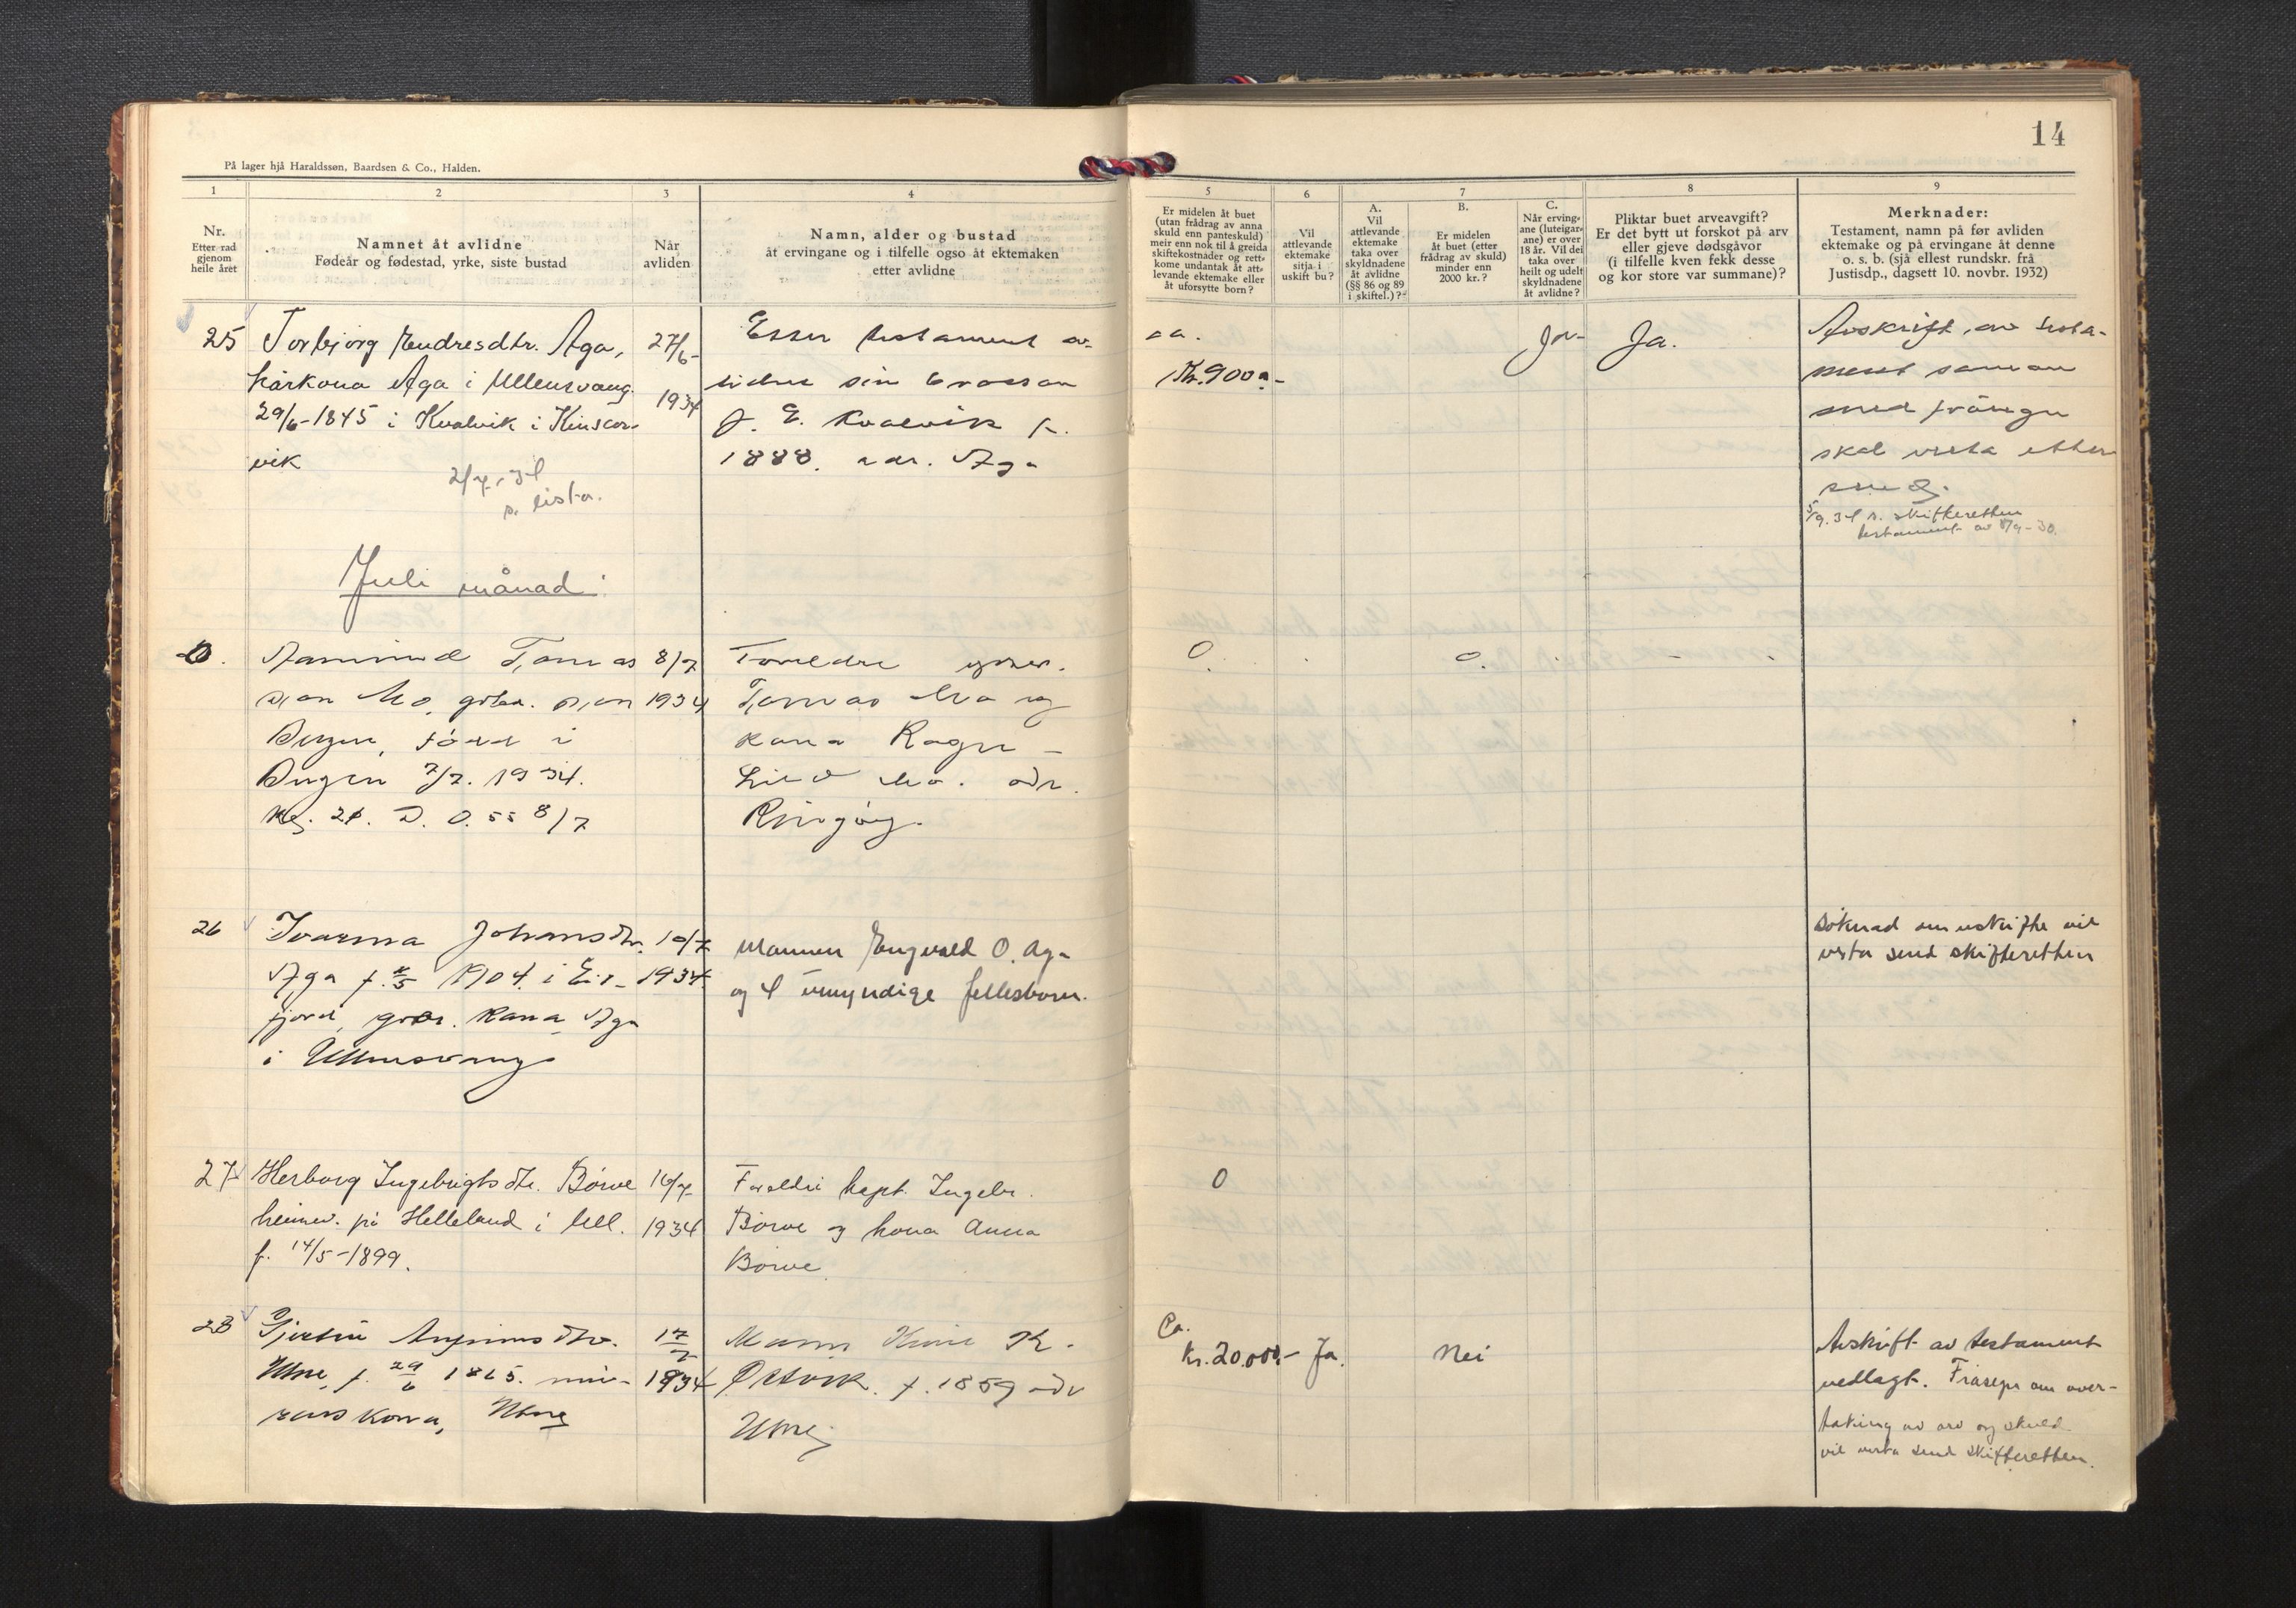 14
På lager hjå Haraldssøn, Baardsen & Co., Halden.
1 2 3 4 5 6 7 8 9
Nr.
Etter rad
gjenom
heile året
Namnet åt avlidne
Fødeår og fødestad, yrke, siste bustad
Når
avliden
Namn, alder og bustad
åt ervingane og i tilfelle også åt ektemaken
etter avlidne
Er midelen åt buet
(utan frådrag av anna
skuld enn panteskuld)
meir enn nok til å greida
skiftekostnader og rett-
kome undantak åt att-
levande ektemake eller
åt uforsytte born?
Vil
attlevande
ektemake
sitja i
uskift bu?
A.
Vil
attlevande
ektemake
taka over
skyldnadene
åt avlidne
(§§ 86 og 89
i skiftel.)?
B.
Er midelen
åt buet (etter
frådrag av skuld)
minder enn
2000 kr.?
C.
Når erving-
ane (luteigar-
ane) er over
18 år. Vil dei
taka over
heilt og udelt
skyldnadene
åt avlidne?
Pliktar buet arveavgift?
Er det bytt ut forskot på arv
eller gjeve dødsgåvor
(i tilfelle kven fekk desse
og kor store var summane)?
Merknader:
Testament, namn på før avliden
ektemake og på ervingane åt denne
o. s. b. (sjå ellest rundskr. frå
Justisdp., dagsett 10. novbr. 1932)
25 Torbjørg Endresdtr. Aga,
kårkona Aga i Ullensvang.
29/6-1845 i Kvalvik i Kinsar-
vik
27/6-
1934
2/7-34
s. lista.
Etter testament av-
lidne sin brorson
J. E. Kvalvik f.
1888. adr. Aga
ca.
Kr. 900.-
Ja
Ja.
Avskrift av testa-
ment saman
med
skal verta etter
send.
5/9.34 s. skifteretten
testament av 8/9-30.
Juli månad:
0. Aamund Tomas
son Mo, gbr. son
Bergen, fødd i
Bergen 7/7. 1934.
8/7
1934
Foreldre
Tomas Mo og
kona Ragn-
hild Mo. adr.
Ringøy.
0.
0.
26 Ivarna Johansdtr.
Aga f. 1904 i Eid-
fjord, gbr. kona Aga
i Ullensvang
10/7
1934
Mannen Engvald O. Aga
og 4 umyndige fellesborn.
Søknad om uskifte vil
verta send skifteretten
27 Herborg Ingebrigtsdtr. Børve
heimev. på Helleland i Ull.
f. 14/5-1899.
16/7
1934
Foreldri kapt. Ingebr.
Børve og kona Anna
Børve
0
28 Gjertrú
Utne, f. 29/6 1865.
kona, Utne
17/7
1934
Mann K.
f. 1859 adr
Utne
Ca.
Kr. 20.000.-
Ja.
Nei
Avskrift av testament
vedlagt. Fråsegn om over-
taking av arv og skuld
vil verta send skifteretten.